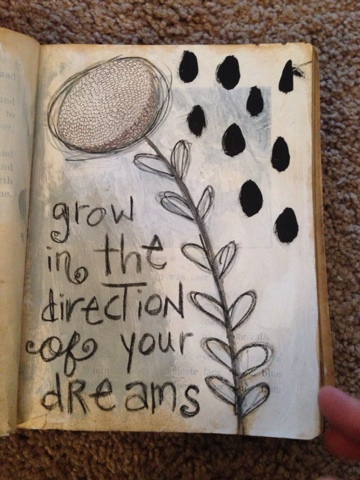 grow
in the
direcTioN
of your
dReams